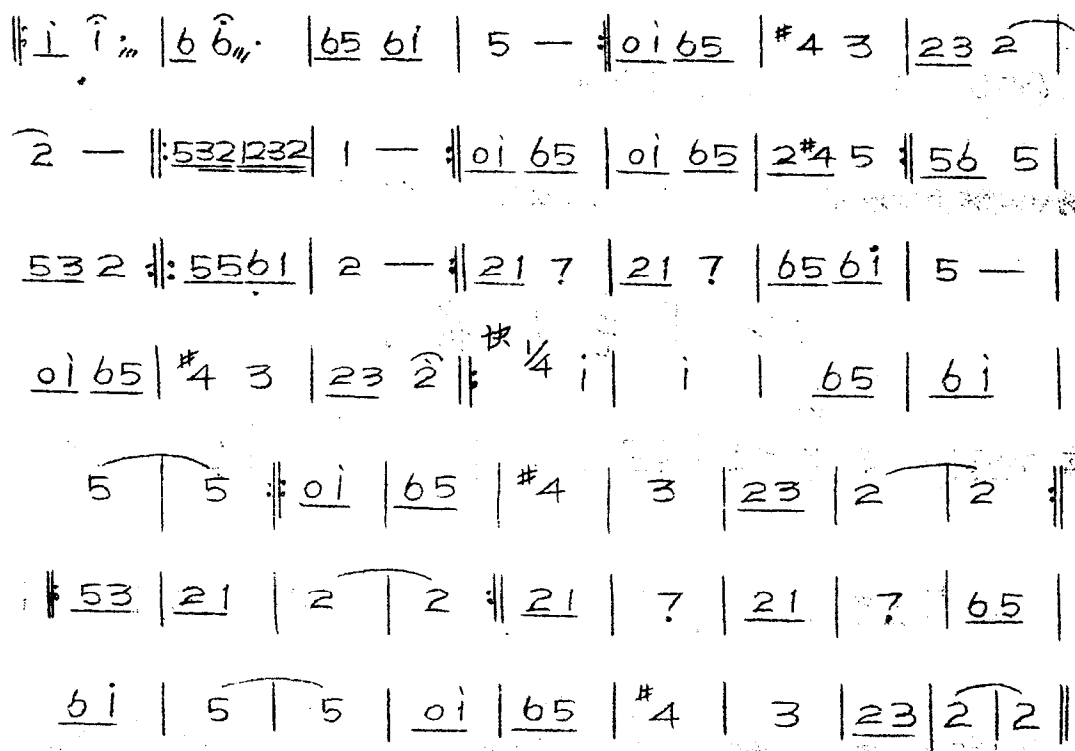 ‖: i i ‧ /// | 6 6 /// ‧ | 65 6i | 5 — :‖ 0i 65 | #4 3 | 23 2 |
2 — ‖: 5321232 | 1 — :‖ 0i 65 | 0i 65 | 2#4 5 :‖ 56 5 |
53 2 :‖: 5561 | 2 — :‖ 21 7 | 21 7 | 65 6i | 5 — |
0i 65 | #4 3 | 23 2 ‖: 快 1/4 i | i | 65 | 6i |
5 | 5 :‖: 0i | 65 | #4 | 3 | 23 | 2 | 2 :‖
‖: 53 | 21 | 2 | 2 :‖ 21 | 7 | 21 | 7 | 65 |
6i | 5 | 5 | 0i | 65 | #4 | 3 | 23 | 2 | 2 ‖